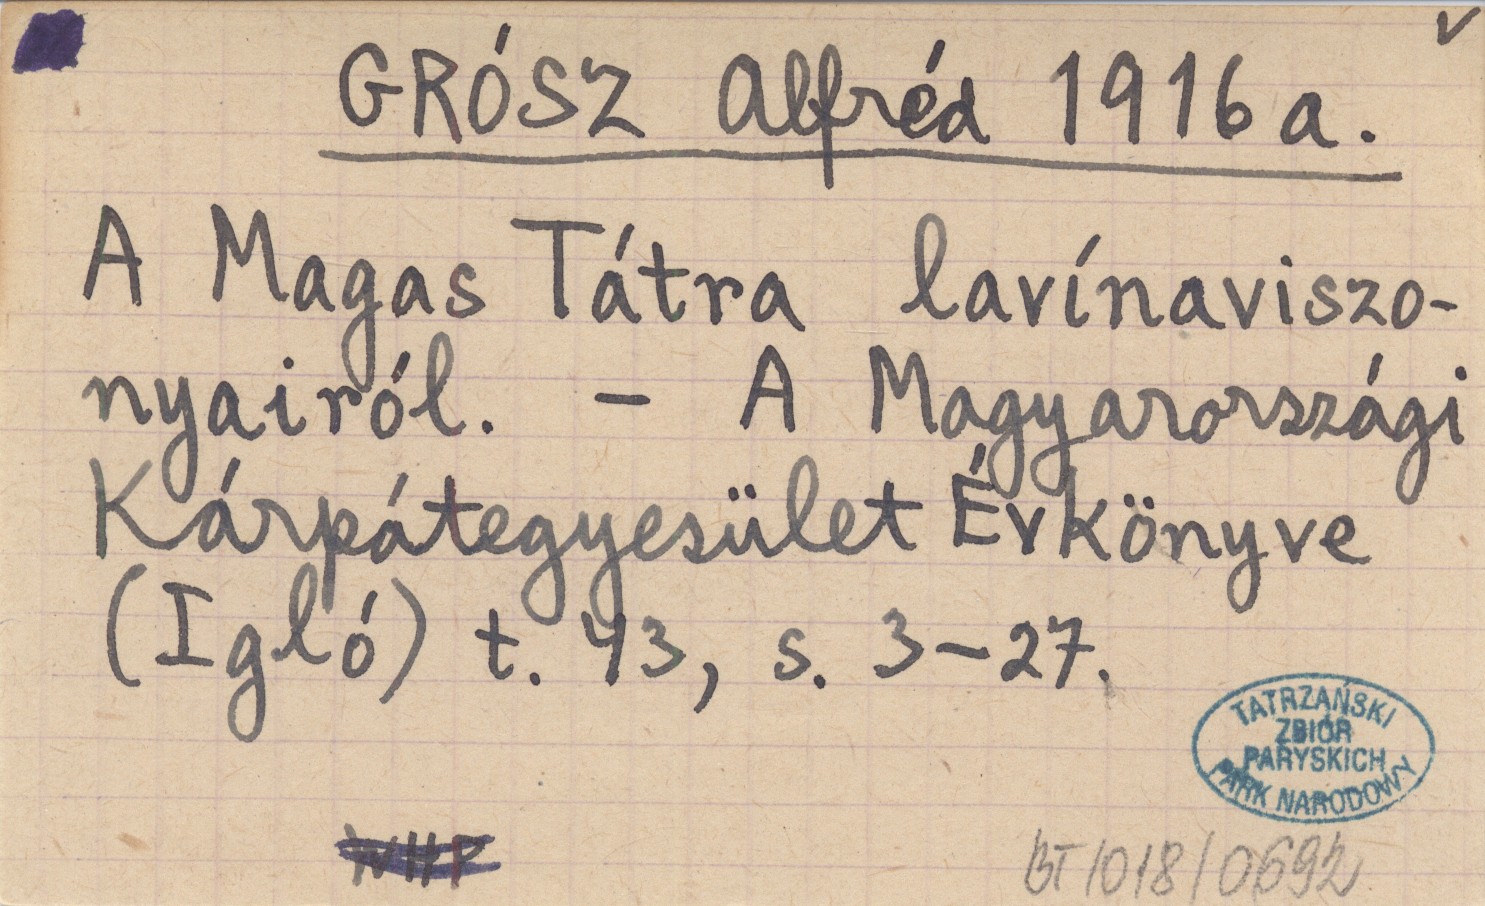 ✓
GRÓSZ Alfréd 1916 a.
A Magas Tátra lavínaviszo-
nyairól. – A Magyarországi
Kárpátegyesület Évkönyve
(Igló) t. 43, s. 3–27.
TATRZAŃSKI
ZBIÓR
PARYSKICH
PARK NARODOWY
BT/018/0692